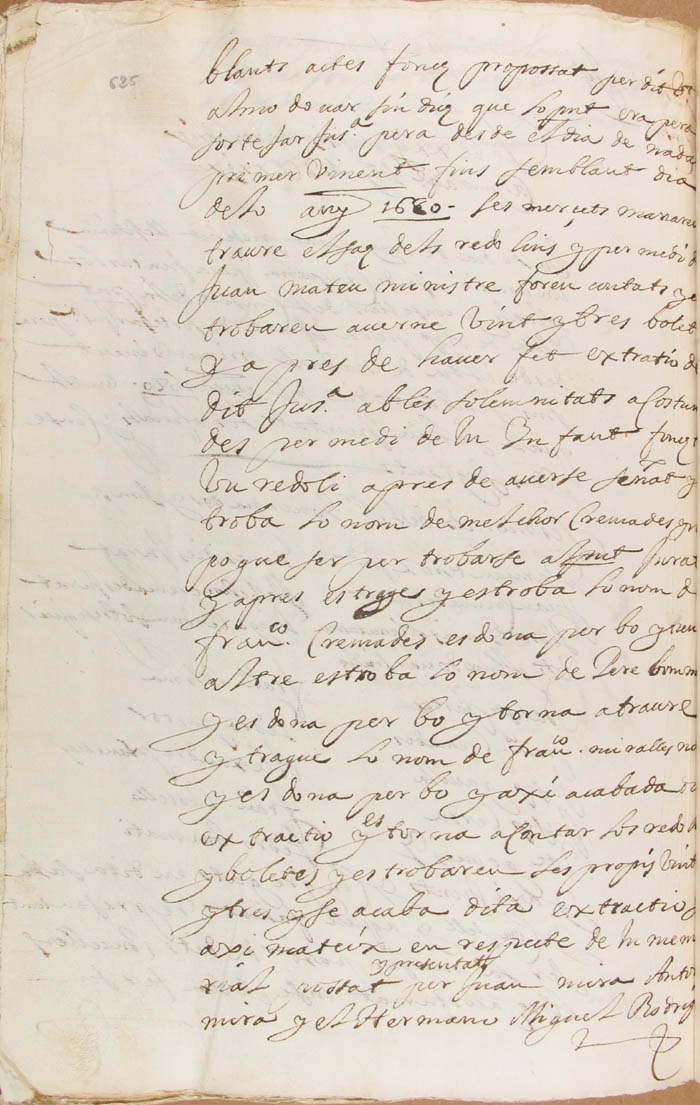 525
blants actes fonch propossat per dit Sr
almodovar sindich que lo pnt era per
sortejar Jusª. pera desde el dia de nada
primer vinent fins semblant dia
de lo any 1680 - ses mersets manaren
traure el sach dels redolins y per medi d
Juan mateu ministre foren contats y e
trobaren averne vint y tres bolet
y apres de haver fet extratio de
dit Jusª. ab les solemnitats acostum
des per medi de hu Infant fonch
hu redoli apres de averse señat y
troba lo nom de melchor Cremades y
pogue ser per trobarse alpnt jurat
y apres es trague y estroba lo nom d
franco. Cremades es dona per bo y en
altre estroba lo nom de Pere bonm
y es dona per bo y torna a traure
y trague lo nom de franco. miralles no
y es dona per bo y axi acabada
extractio es y torna a contar los redo
y boletes y es trobaren les propis vint
y tres y se acaba dita extractio
axi mateix en respecte de hu mem
rial possat y presentat per Juan mira Anto
mira y el Hermano Miguel Rodrig